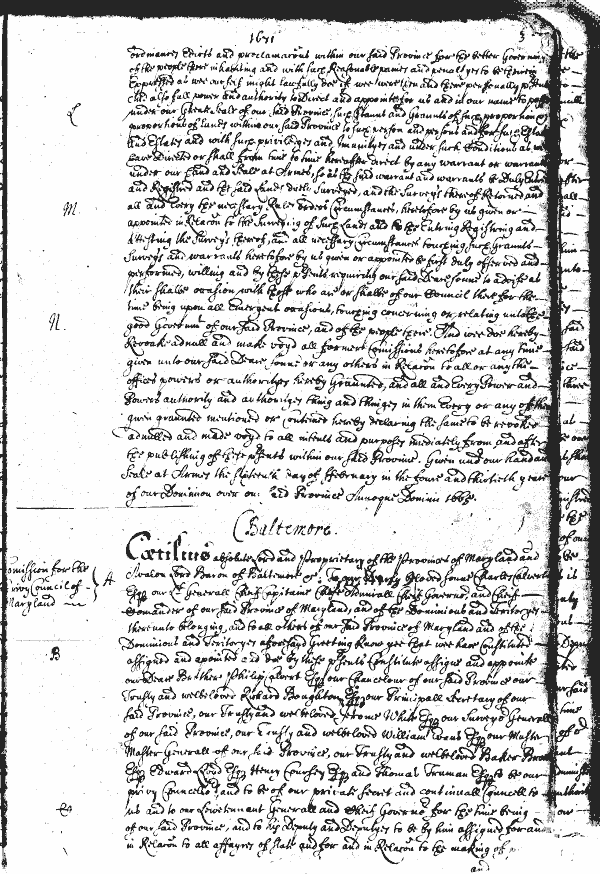 1671
3
ordinances Edicts and proclamacons within our said Province for the better Governmt
of the people there inhabiting and with such Reasonable paines and penaltyes to be therein
Expressed as wee our self might lawfully doe if wee were then and there personally
and also full power and authority to direct and appointe for us and in our name to passe
L
under our Greate Seale of our said Province such Graunts and Graunts of such proporcon
proporcons of lands within our said Province to such person and persons and for such Estate
and Estates and with such priviledges and Imunityes and under such Conditions as wee
have directed or shall from time to time hereafter direct by any warrant or warrants
under our hand and Seale at Armes, so as the said warrant and warrants be duly Entred
and Registred and the said lands duely Surveyed, and the Surveys thereof Returned and
M.
all and Every the necessary Rules orders Circumstances, heretofore by us given or
appointed in Relacon to the Surveying of such lands and to the Entring Registring and
attesting the Surveys thereof, and all necessary circumstances touching such Graunts
Surveys and warrants heretofore by us given or appointed be first duly observed and
performed, willing and by these psents requiring our said Deare sonne to advise as
their shalbe occasion with those who are or shalbe of our Councill there for the
time being upon all Emergent occasions, touching concerning or relating unto the
N.
good Governmt of our said Province, and of the people there. And wee doe hereby
Revoake adnull and make voyd all former Comissions heretofore at any time
given unto our said Deare sonne or any others in Relacon to all or any the
offices powers or authorityes hereby Graunted, and all and Every Power and
Powers authority and authorityes thing and thinges in them Every or any of them
given graunted mentioned or Conteined hereby declaring the same to be revoaked
adnulled and made voyd to all intents and purposes imediately from and after
the publishing of these psents within our said Province. Given under our hand and
Seale at Armes the sixteenth day of February in the foure and thirtieth yeare
of our Dominion over our said Province Annoque Domini 1665.
C Baltemore.
Comission for the
Privy Councill of
Maryland
A
Cæcilius absolute Lord and Proprietary of the Province of Maryland and
Avalon Lord Baron of Baltemore &c. To our Dearly beloved sonne Charles Calvert
Esqr our Lt Generall Cheif Capitaine Cheif Admirall Cheif Governor and Cheif
Comander of our said Province of Maryland, and of the Dominions and Territoryes
thereunto belonging, and to all others of our said Province of Maryland and of the
Dominions and Territoryes aforesaid Greeting know yee that wee have Constituted
B
assigned and apointed and doe by these psents Constitute assigne and appointe
our Deare Brother Philip Calvert Esqr our Chancelour of our said Province our
Trusty and welbeloved Richard Boughton Esqr our Principall Secretary of our
said Province, our Trusty and welbeloved Jerome White Esqr our Surveyor Generall
of our said Province, our Trusty and welbeloved William Evans Esqr our Muster
Master Generall of our said Province, our Trusty and welbeloved Baker Brooke
Esqr Edward Lloyd Esqr Henry Coursey Esqr and Thomas Truman Esqr to be our
privy Councell, and to be of our private Secret and continuall Councell to
us and to our Lieuetennant Generall and Cheif Governor for the time being
of our said Province, and to his Deputy and Deputyes to be by him assigned for and
in Relacon to all affayres of State and for and in Relacon to the making of
and